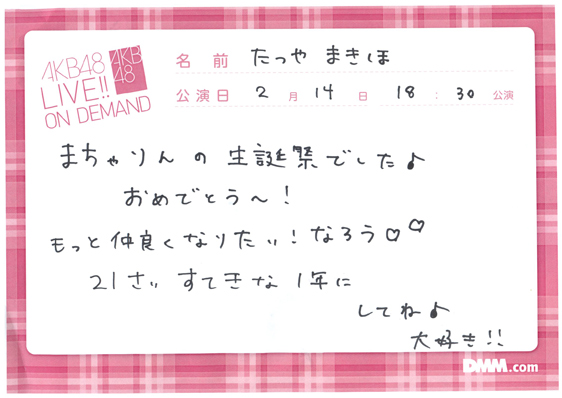 AKB48
LIVE!!
ON DEMAND
AKB
48
名前 たつや まきほ
公演日 2月14日 18:30公演
まちゃりんの生誕祭でした♪
おめでとう〜!
もっと仲良くなりたい!なろう♡♡
21さい すてきな1年に
してね♪
大好き!!
DMM.com